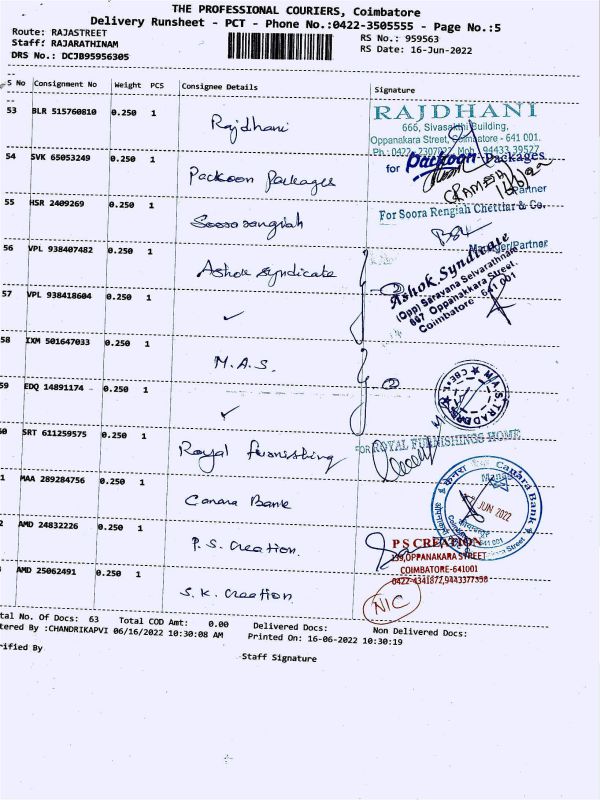 THE PROFESSIONAL COURIERS, Coimbatore
Delivery Runsheet - PCT - Phone No.:0422-3505555 - Page No.:5
Route: RAJASTREET
RS No.: 959563
Staff: RAJARATHINAM
RS Date: 16-Jun-2022
DRS No.: DCJB95956305
S No Consignment No Weight PCS Consignee Details Signature
53 BLR 515760810 0.250 1 Rajdhani
RAJDHANI
666, Sivasakthi Building,
Oppanakara Street, Coimbatore - 641 001.
Ph : 0422- 2307027, Mob : 94433 39527
54 SVK 65053249 0.250 1 Packoon Packages
for Packoon Packages
Partner
55 HSR 2409269 0.250 1 Soora rangiah
For Soora Rengiah Chettiar & Co.
Manager/Partner
56 VPL 938407482 0.250 1 Ashok Syndicate
Ashok Syndicate
(Opp) Sarayana Selvarathnam
667 Oppanakkara Street.
Coimbatore 641 001
57 VPL 938418604 0.250 1 ✓
58 IXM 501647033 0.250 1 M.A.S.
M.A.S. TRADERS
CBE-1
59 EDQ 14891174 0.250 1 ✓
0 SRT 611259575 0.250 1 Royal furnishing
FOR ROYAL FURNISHINGS HOME
1 MAA 289284756 0.250 1 Canara Bank
Canara Bank
JUN 2022
2 AMD 24832226 0.250 1 P.S. Creation.
P S CREATION
139,OPPANAKARA STREET
COIMBATORE-641001
0422-4341872,9443377358
AMD 25062491 0.250 1 S.K. Creation.
NIC
tal No. Of Docs: 63 Total COD Amt: 0.00 Delivered Docs: Non Delivered Docs:
tered By :CHANDRIKAPVI 06/16/2022 10:30:08 AM Printed On: 16-06-2022 10:30:19
rified By
Staff Signature